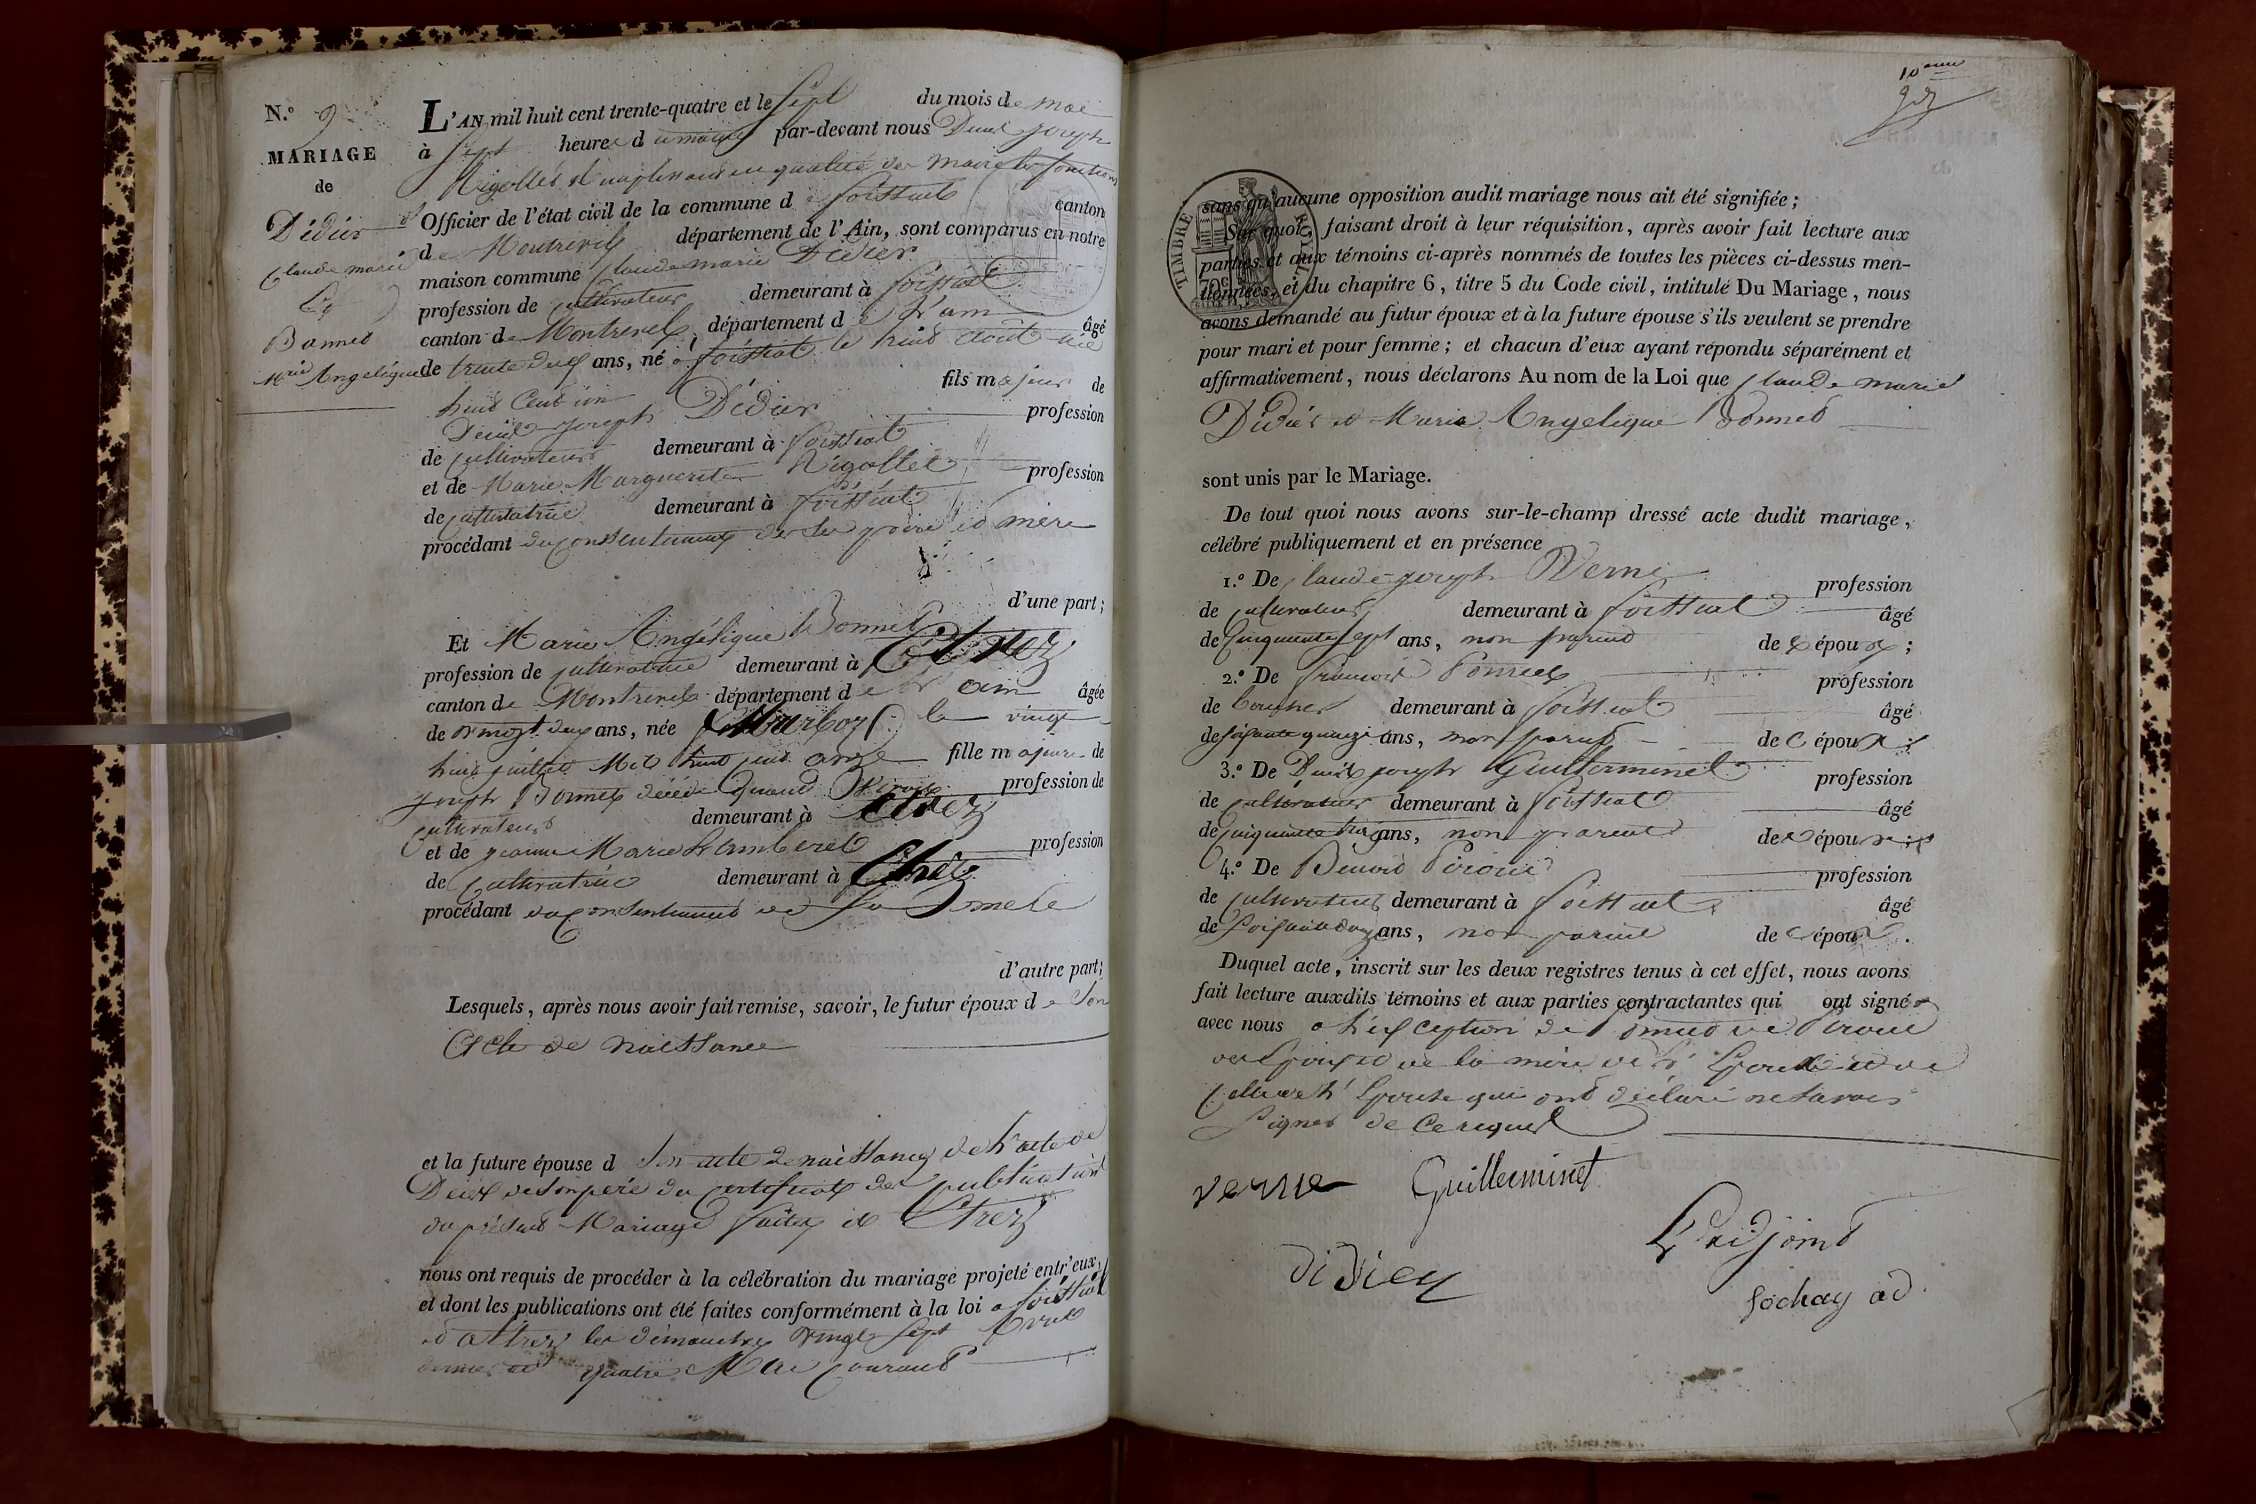 N.º 9
MARIAGE
de
Didier et
Claude marie
Et
Bonnet
Mrie Angelique
L'AN mil huit cent trente-quatre et le Sept du mois de mai
à Sept heures du matin par-devant nous Denis Joseph
Rigollet en qualité de Maire les fonctions
Officier de l'état civil de la commune de foissiat canton
de Montrevel département de l'Ain, sont comparus en notre
maison commune Claude marie Didier
profession de cultivateur demeurant à foissiat
canton de Montrevel département de l'ain âgé
de trente deux ans, né à foissiat le huit août mil
huit Cent un fils majeur de
Denis joseph Didier profession
de cultivateur demeurant à foissiat
et de Marie Marguerite Rigollet profession
de cultivatrice demeurant à foissiat
procédant du consentement de ses père et mère
d'une part;
Et Marie Angélique Bonnet
profession de cultivatrice demeurant à Etrez
canton de Montrevel département de l'ain âgée
de vingt deux ans, née à Marboz le vingt
huit juillet Mil huit cent onze fille majeure de
joseph Bonnet décédé quand vivait profession de
cultivateur demeurant à etrez
et de jeanne Marie Lamberet profession
de cultivatrice demeurant à Etrez
procédant du consentement de sa mere
d'autre part;
Lesquels, après nous avoir fait remise, savoir, le futur époux de Son
Acte de naissance
et la future épouse d Son acte de naissance de l'acte de
Décès de son père du certificat de publication
du présent Mariage faites à Etrez
nous ont requis de procéder à la célébration du mariage projeté entr'eux,
et dont les publications ont été faites conformément à la loi a foissiat
et a Etrez les dimanches vingt Sept Avril
dernier et quatre Mai courant
10eme
sans qu'aucune opposition audit mariage nous ait été signifiée;
TIMBRE ROYAL
70c
Sur quoi, faisant droit à leur réquisition, après avoir fait lecture aux
parties et aux témoins ci-après nommés de toutes les pièces ci-dessus men-
tionnées, et du chapitre 6, titre 5 du Code civil, intitulé Du Mariage, nous
avons demandé au futur époux et à la future épouse s'ils veulent se prendre
pour mari et pour femme; et chacun d'eux ayant répondu séparément et
affirmativement, nous déclarons Au nom de la Loi que Claude marie
Didier et Marie Angelique Bonnet
sont unis par le Mariage.
De tout quoi nous avons sur-le-champ dressé acte dudit mariage,
célébré publiquement et en présence
1.º De Claude joseph Verne profession
de cultivateur demeurant à foissiat âgé
de Cinquante Sept ans, non parent de l'époux;
2.º De francois profession
de demeurant à foissiat âgé
de soixante quinze ans, non parent de l'époux;
3.º De Denis joseph Guillerminet profession
de cultivateur demeurant à foissiat âgé
de Cinquante trois ans, non parent de l'époux;
4.º De Benoit Piroud profession
de cultivateur demeurant à foissiat âgé
de Soixante ans, non parent de l'époux.
Duquel acte, inscrit sur les deux registres tenus à cet effet, nous avons
fait lecture auxdits témoins et aux parties contractantes qui ont signé
avec nous a l'exception de et de Piroud
de l'époux et de la mère de l'Epoux et de
Celle de l'Epouse qui ont déclaré ne savoir
Signer de ce requis
verne Guillerminet
L'adjoint
didier
Sochay ad.